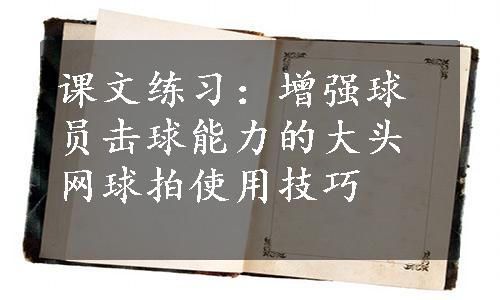 课文练习：增强球
员击球能力的大头
网球拍使用技巧